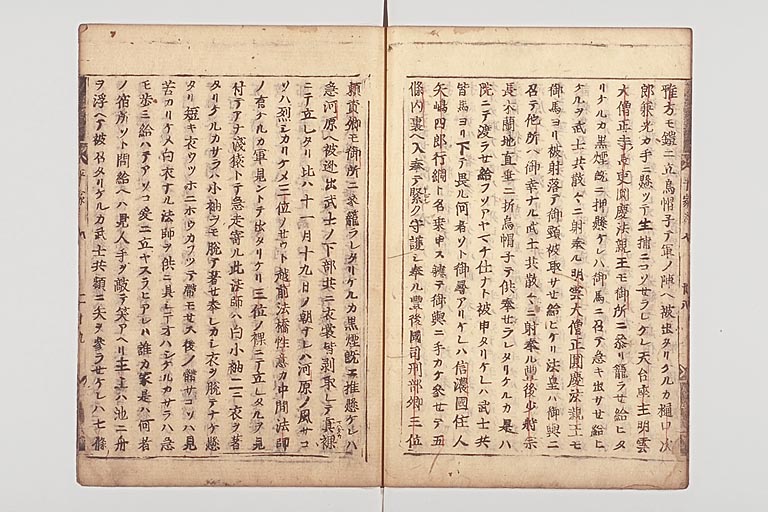 雅方モ鎧ニ立烏帽子テ軍ノ陣ヘ被出タリケルカ樋口次
郎兼光カ手ニ懸ツテ生捕ニコソせラレケレ天台座主明雲
大僧正寺ノ長吏圓慶法親王モ御所ニ参リ籠ラせ給ヒタ
リケルカ黒煙既ニ押懸ケレハ御馬ニ召テ急キ出サせ給ヒ
ケルヲ武士共散々ニ射奉ル明雲大僧正圓慶法親王モ
御馬ヨリ被射落テ御頸被取サせ給ヒケリ法皇ハ御輿ニ
召テ他所ヘ御幸ナル武士共散々ニ射奉ル豊後少将宗
長木蘭地直垂ニ折烏帽子テ供奉せラレタリケルカ是ハ
院ニテ渡ラせ給フソアヤマチ仕ナト被申タリケレハ武士共
皆馬ヨリ下テ畏ル何者ソト御尋アリケレハ信濃國住人
矢嶋四郎行綱ト名乗申ス軈テ御輿ニ手カケ参せテ五
條内裏ヘ入奉テ緊ク守護シ奉ル豊後國司刑部卿三位
頼資卿モ御所ニ参籠ラレタリケルカ黒煙既ニ推懸ケレハ
急河原ヘ被迯出武士ノ下部共ニ衣裳皆剥取レテ真裸
ニテ立レタリ比ハ十一月十九日ノ朝ナレハ河原ノ風サコ
ソハ烈シカリケメ三位ノせウト越前法橋性意カ中間法師
ノ有ケルカ軍見ントテ出タリケリ三位ノ裸ニテ立レタルヲ見
付テアナ淺猿トテ急走寄ル此法師ハ白小袖二ニ衣ヲ著
タリケルカサラハ小袖ヲモ脱テ著せ奉レカシ衣ヲ脱テナケ懸
タリ短キ衣ウツホニホウカフツテ帯モせス後ノ躰サコソハ見
苦カリケメ白衣ナル法師ヲ供ニ具シテオハシケルカサラハ急
モ歩ミ給ハテアソコ爰ニ立ヤスラヒアレハ誰カ家是ハ何者
ノ宿所ソト問給ヘハ見人手ヲ敲テ笑アヘリ主上ハ池ニ舟
ヲ浮ヘテ被召タリケルカ武士共頻ニ矢ヲ参ラせケレハ七條